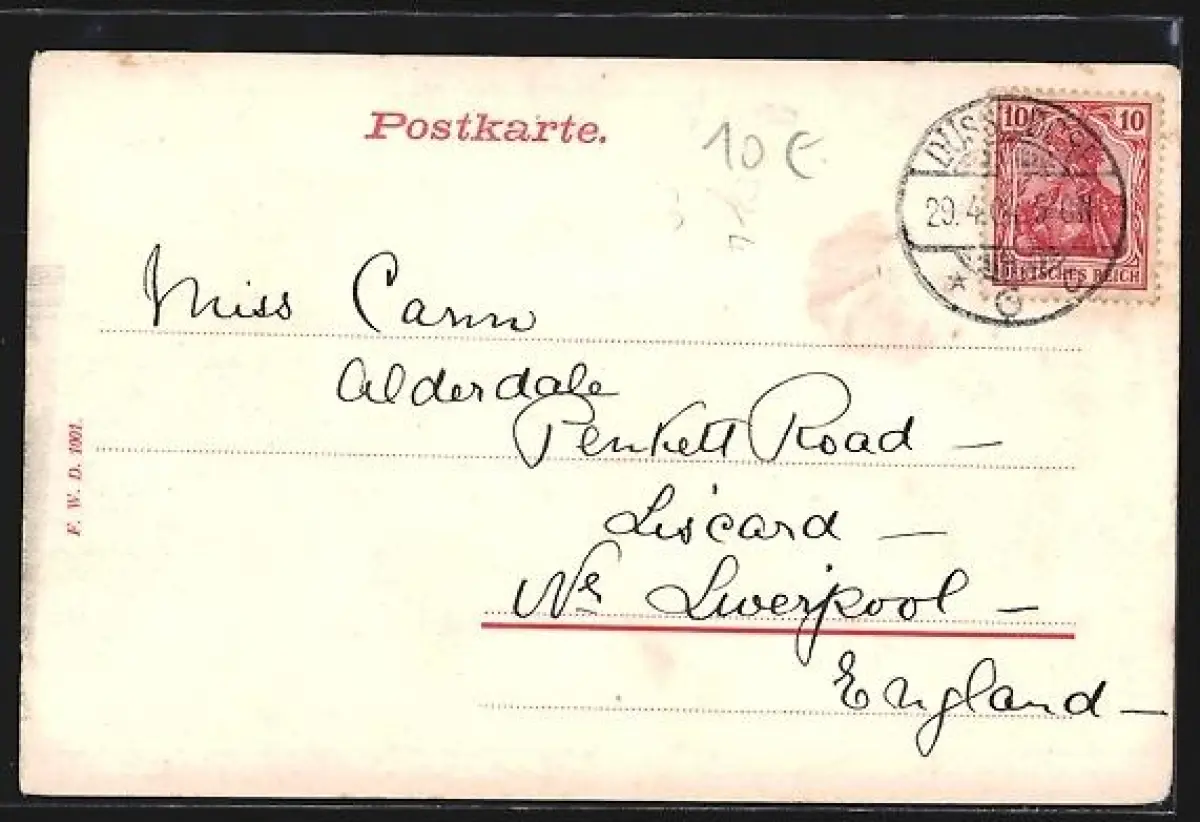 Postkarte.
10 €
10 10
DEUTSCHES REICH
Miss Cann
Alderdale
Penkett Road —
Liscard —
Nr Liverpool —
England —
F. W. D. 1901.